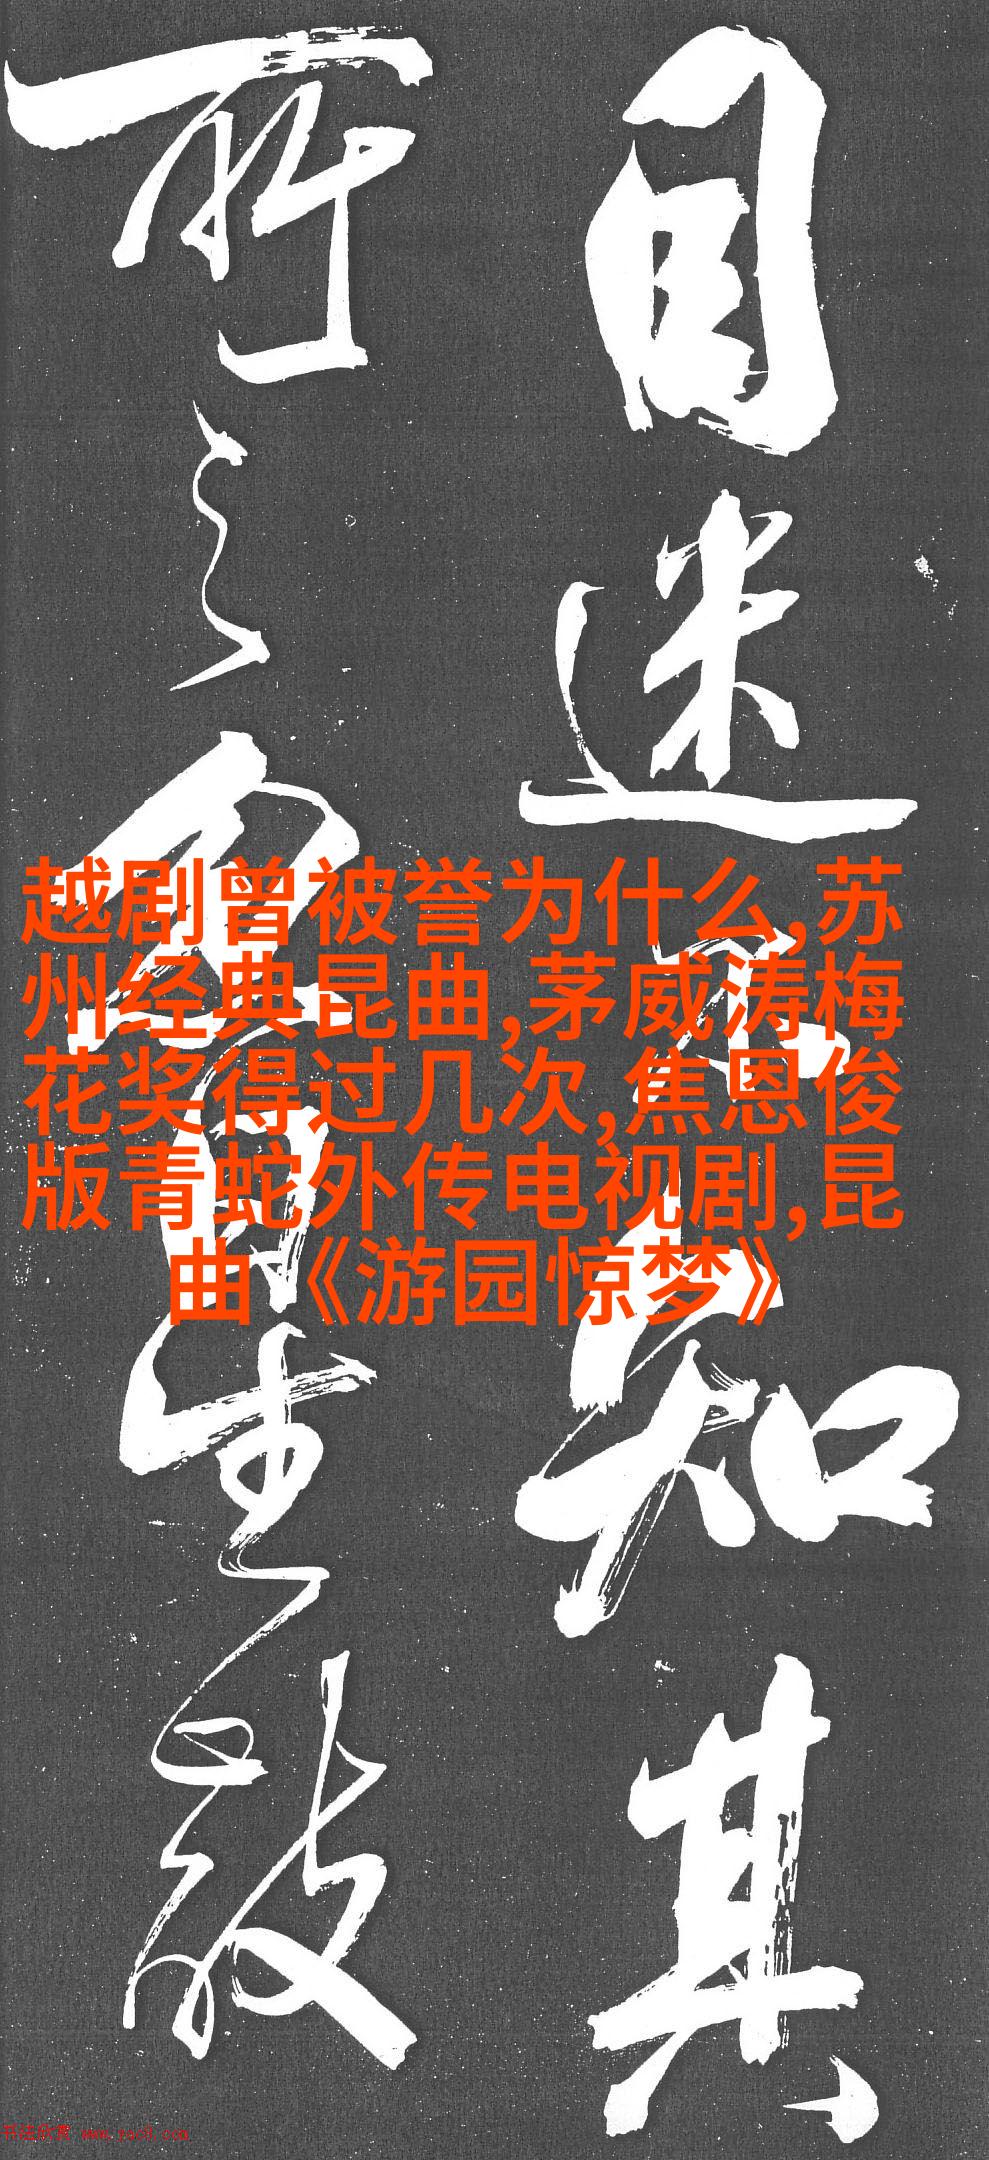 目迷不知其
所之愈自生敬
越剧曾被誉为什么,苏
州经典昆曲,茅威涛梅
花奖得过几次,焦恩俊
版青蛇外传电视剧,昆
曲《游园惊梦》
书法欣赏 www.yac8.com